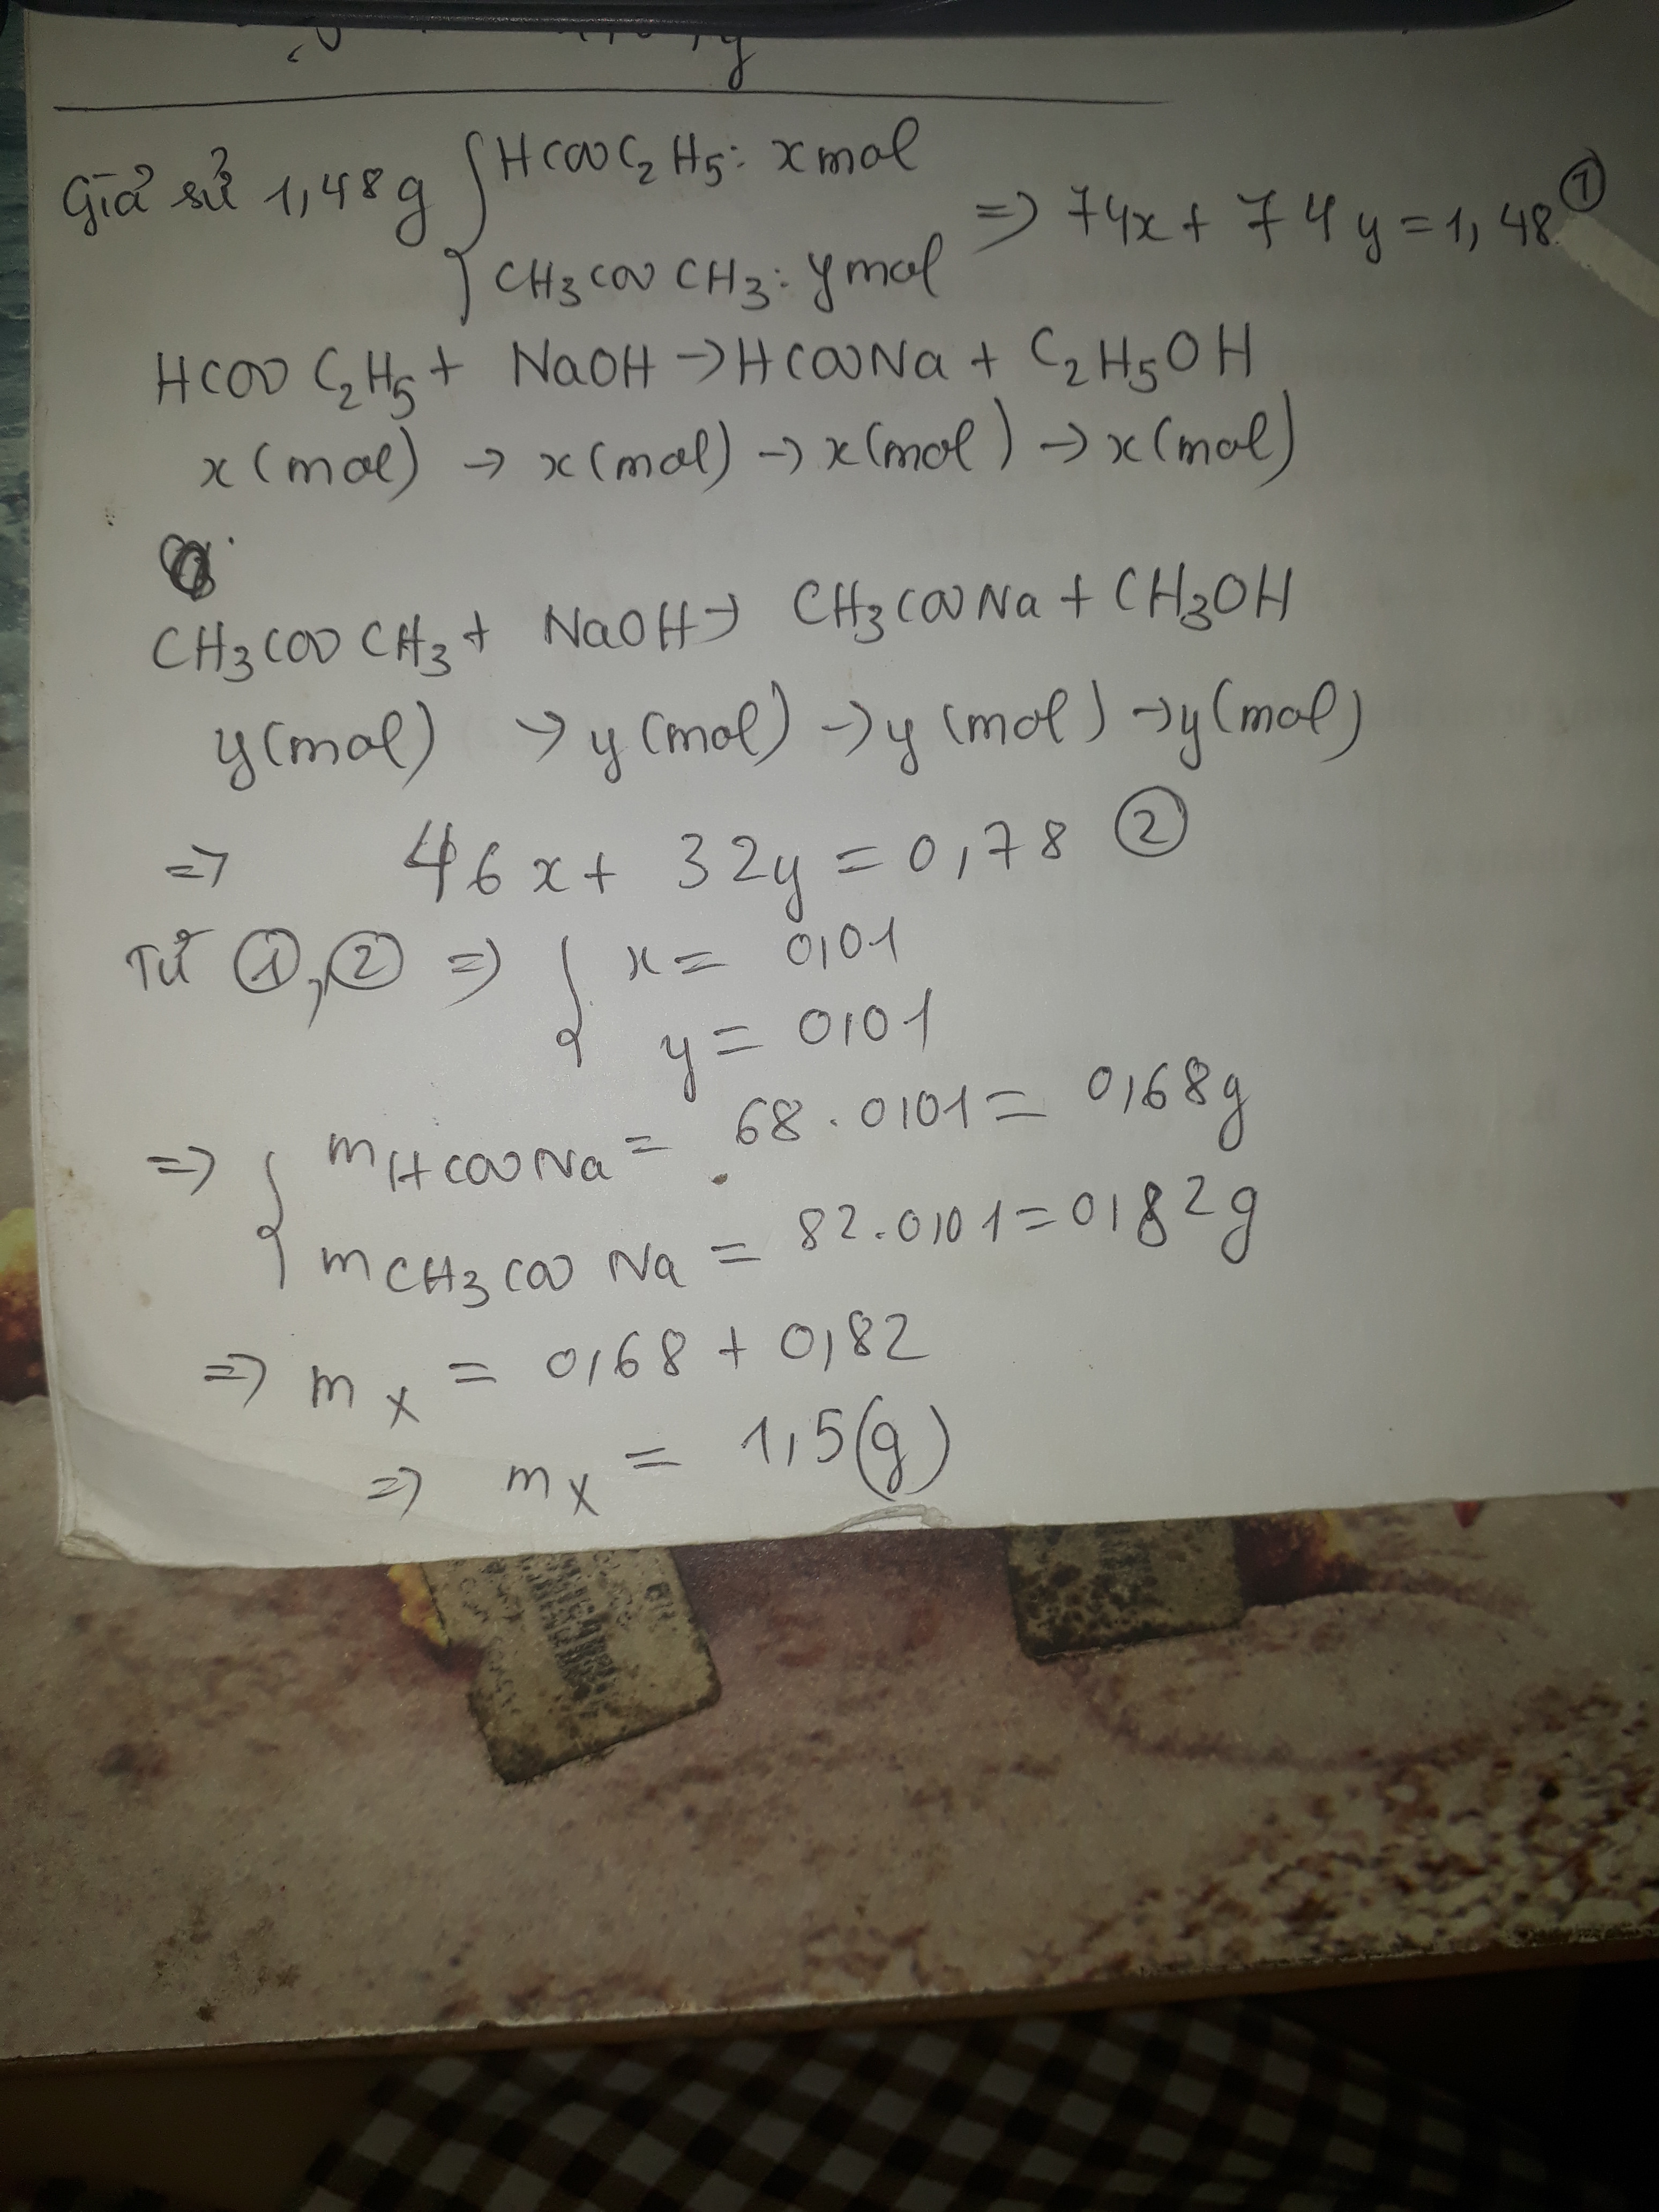 Giả sử 1,48g { HCOOC2H5: x mol
CH3COOCH3: y mol
=> 74x + 74y = 1,48 ①
HCOOC2H5 + NaOH → HCOONa + C2H5OH
x(mol) → x(mol) → x(mol) → x(mol)
CH3COOCH3 + NaOH → CH3COONa + CH3OH
y(mol) → y(mol) → y(mol) → y(mol)
=> 46x + 32y = 0,78 ②
Từ ①, ② => { x = 0,01
y = 0,01
=> { mHCOONa = 68.0,01 = 0,68g
mCH3COONa = 82.0,01 = 0,82g
=> mX = 0,68 + 0,82
=> mX = 1,5(g)